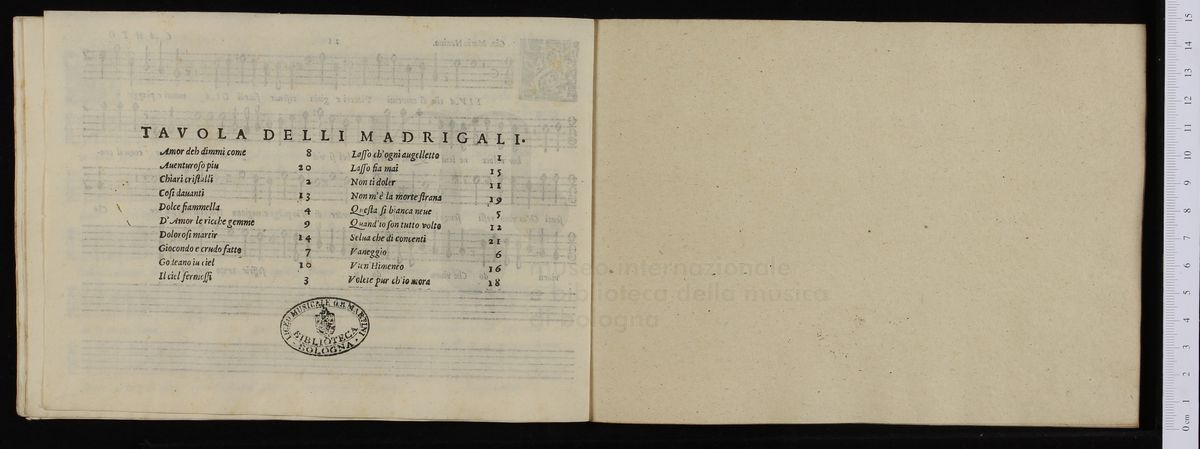 TAVOLA DELLI MADRIGALI.
Amor deh dimmi come 8
Auenturoso piu 20
Chiari cristalli 2
Cosi dauanti 13
Dolce fiammella 4
D'Amor le ricche gemme 9
Dolorosi martir 14
Giocondo e crudo fatto 7
Godeano in ciel 10
Il ciel fermossi 3
Lasso ch'ogni augelletto 1
Lasso fia mai 15
Non ti doler 11
Non m'è la morte strana 19
Questa si bianca neue 5
Quand'io son tutto volto 12
Selua che di concenti 21
Vaneggio 6
Vien Himeneo 16
Volete pur ch'io mora 18
LICEO MUSICALE G.B. MARTINI
BIBLIOTECA
BOLOGNA
museo internazionale
e biblioteca della musica
di bologna
0 cm 1 2 3 4 5 6 7 8 9 10 11 12 13 14 15